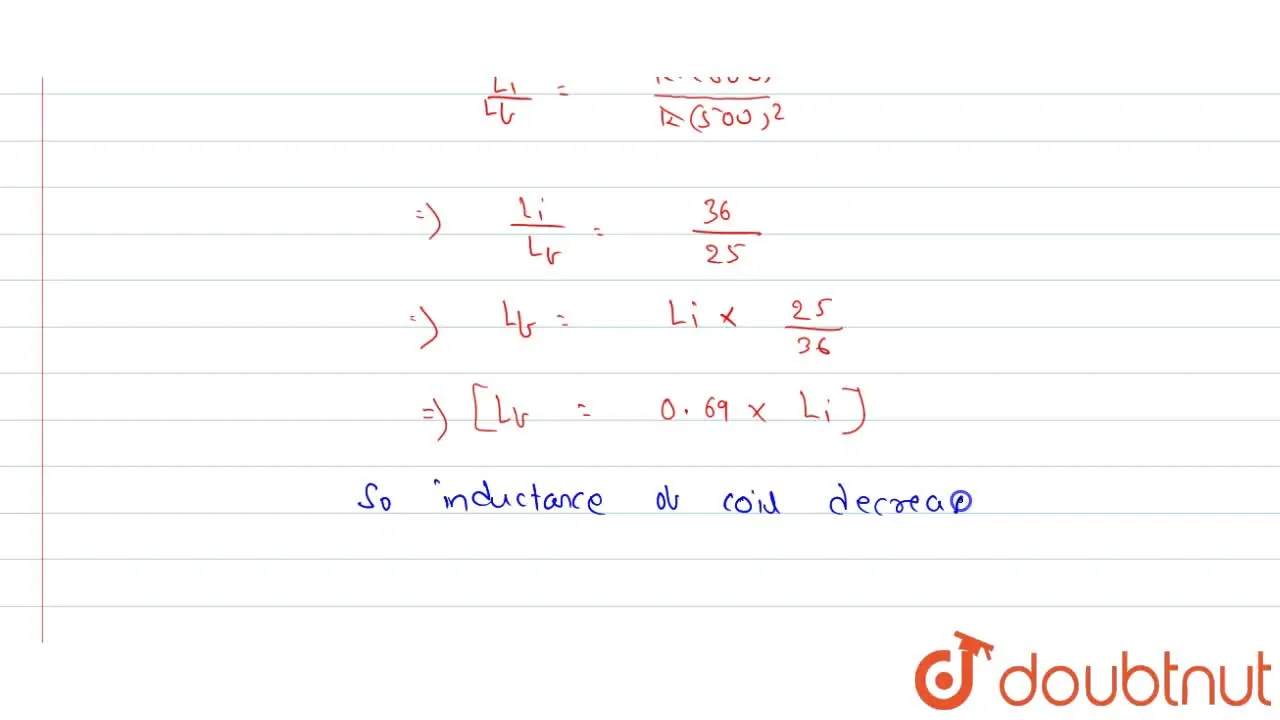 Li / Lf = K (600)² / K (500)²
=) Li / Lf = 36 / 25
=) Lf = Li × 25 / 36
=) [Lf = 0.69 × Li]
So inductance of coil decreas
doubtnut